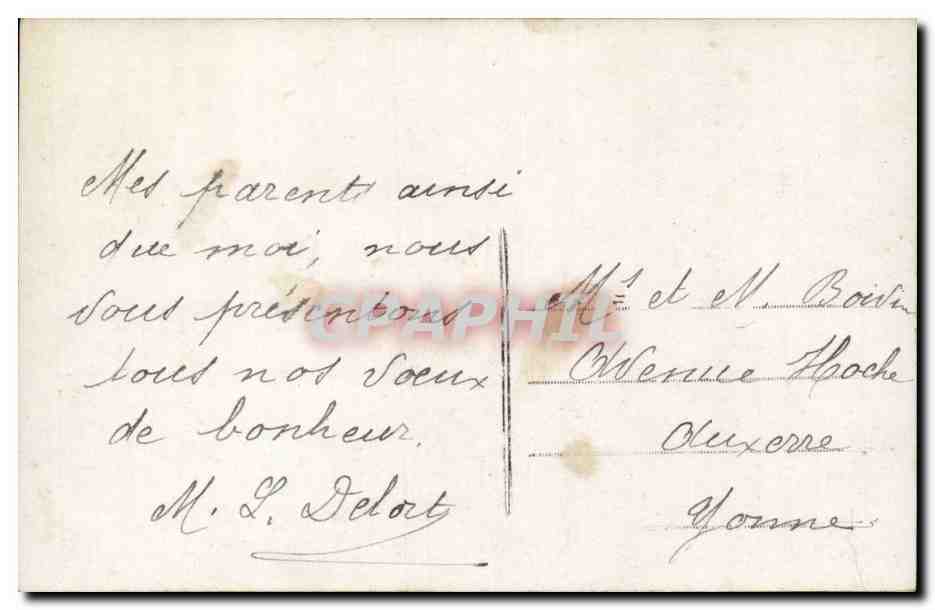 Mes parents ainsi
que moi, nous
vous présentons
tous nos vœux
de bonheur.
M. L. Delort
CPAPHIL
et M. Boivin
Avenue Hoche
Auxerre
Yonne